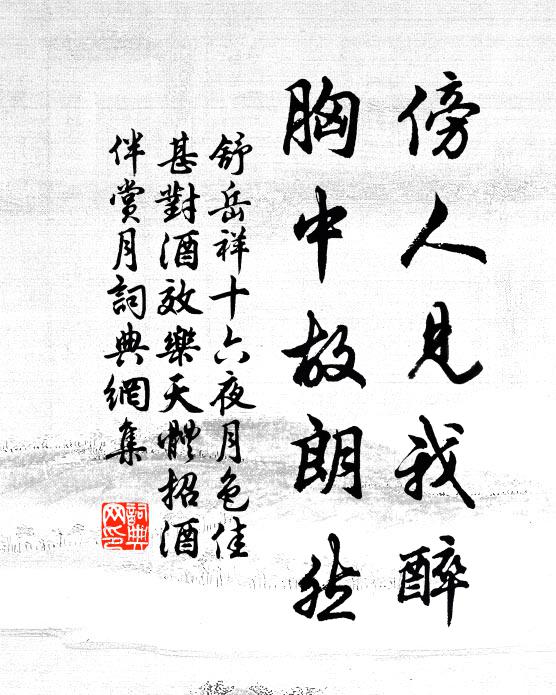 傍人見我醉
胸中故朗然
舒岳祥十六夜月色佳
甚對酒效樂天體招酒
伴賞月詞典網集
詞典网印